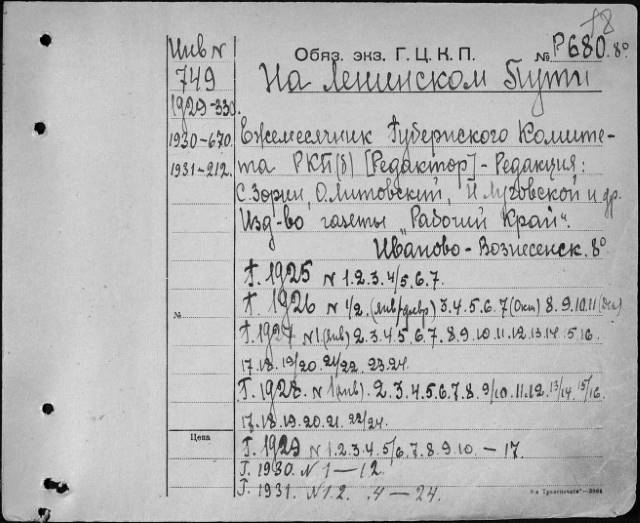 18
Инв N
749
1929-330.
1930-670.
1931-212.
Обяз. экз. Г. Ц. К. П. № Р680. 8°
На Ленинском Пути
Ежемесячник Губернского Комите-
та РКП(б) [Редактор] - Редакция:
С. Зорин, О. Литовский, И. Луговской и др.
Изд-во газеты „Рабочий Край".
Иваново-Вознесенск. 8°
Г. 1925 N 1.2.3.4/5.6.7.
№
Г. 1926 N 1/2. (янв/февр) 3.4.5.6.7 (Окт) 8.9.10.11 (Дек)
Г. 1927 N 1 (янв) 2.3.4.5.6.7.8.9.10.11.12.13.14 15.16.
17.18.19/20. 21/22. 23.24.
Г. 1928. N 1 (янв). 2.3.4.5.6.7.8.9/10.11.12.13/14.15/16.
17.18.19.20.21. 22/24.
Цена
Г. 1929 N 1.2.3.4.5/6.7.8.9.10. — 17.
Г. 1930. N 1 — 12.
Г. 1931. N 1.2. .4 — 24.